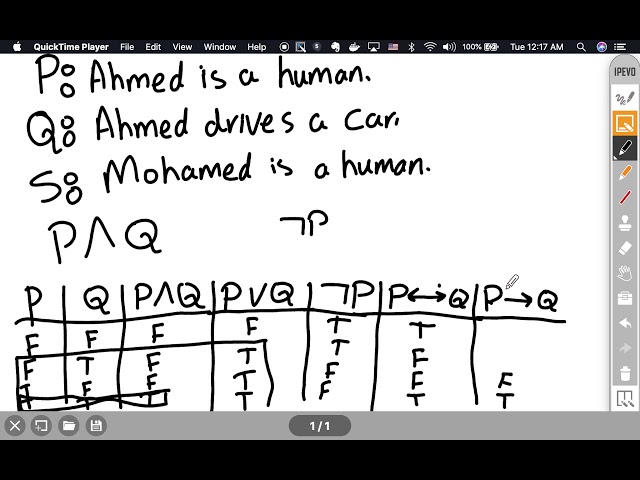 QuickTime Player File Edit View Window Help 100% Tue 12:17 AM
IPEVO
P: Ahmed is a human.
Q: Ahmed drives a car.
S: Mohamed is a human.
P∧Q ¬P
P Q P∧Q P∨Q ¬P P↔Q P→Q
F F F F T T
F T F T T F
T F F T F F F
T T T T F T T
1/1